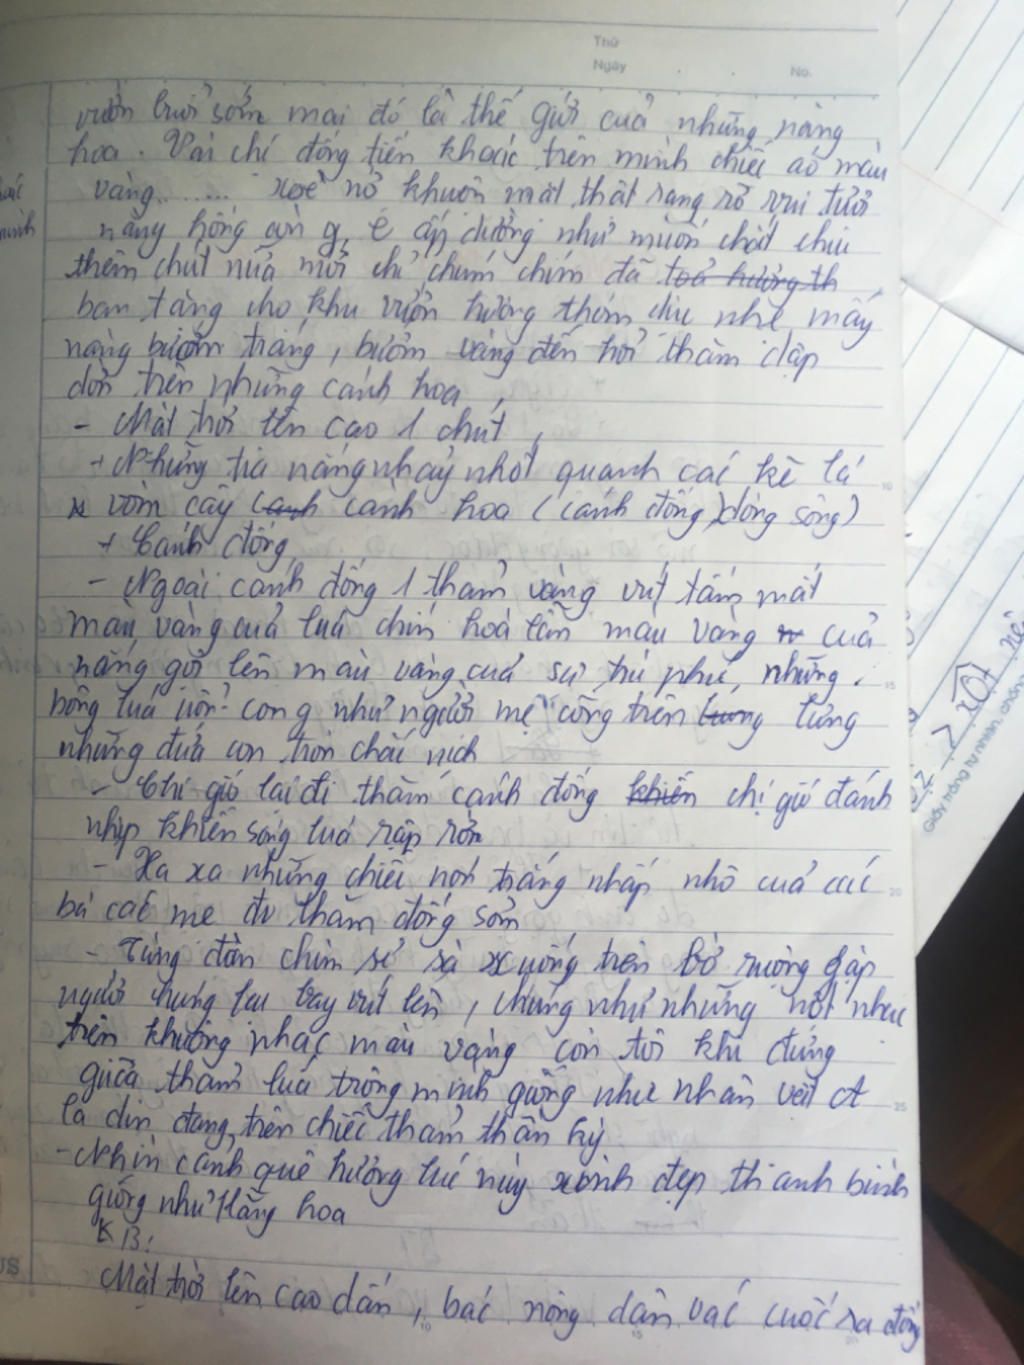 Thứ
Ngày No.
vườn buổi sớm mai đó là thế giới của những nàng
hoa. Vài chí đồng tiền khoác trên mình chiếc áo màu
vàng........ xoè nở khuôn mặt thật rạng rỡ vui tươi
nàng hồng còn e ấp dường như muốn chắt chiu
thêm chút nữa mới chỉ chúm chím đã toả hương th
ban tặng cho khu vườn hương thơm dịu nhẹ mấy
nàng bướm trắng, bướm vàng đến hỏi thăm dập
dờn trên những cánh hoa,
- Mặt trời lên cao 1 chút,
+ Những tia nắng nhảy nhót quanh các kẽ lá
vòm cây canh canh hoa (cánh đồng, dòng sông)
+ Cánh đồng
- Ngoài cánh đồng 1 thảm vàng vút tầm mắt
màu vàng của luá chín hoà lẫn màu vàng của
nắng gợi lên màu vàng của sự trù phú, những
bông luá uốn cong như người mẹ cõng trên lưng lưng
những đứa con tròn chắc nịch
- Chị gió lại đi thăm cánh đồng khiến chị gió đánh
nhịp khiến sóng luá rập rờn
- Xa xa những chiếc nón trắng nhấp nhô cuả các
bà các mẹ đi thăm đồng sớm
- Từng đàn chim sẻ sà xuống trên bờ ruộng gặp
người chúng lại bay vút lên, chúng như những nốt nhạc
trên khuông nhạc màu vàng còn tôi khi đứng
giữa thảm luá trông mình giống như nhân vật A
la din đang trên chiếc thảm thần kỳ
- Nhìn cảnh quê hương lúc này xinh đẹp thanh bình
giống như Hằng hoa
KB:
Mặt trời lên cao dần, bác nông dân vác cuốc ra đồng
10
15
20
25
Giấy trắng tự nhiên, chống